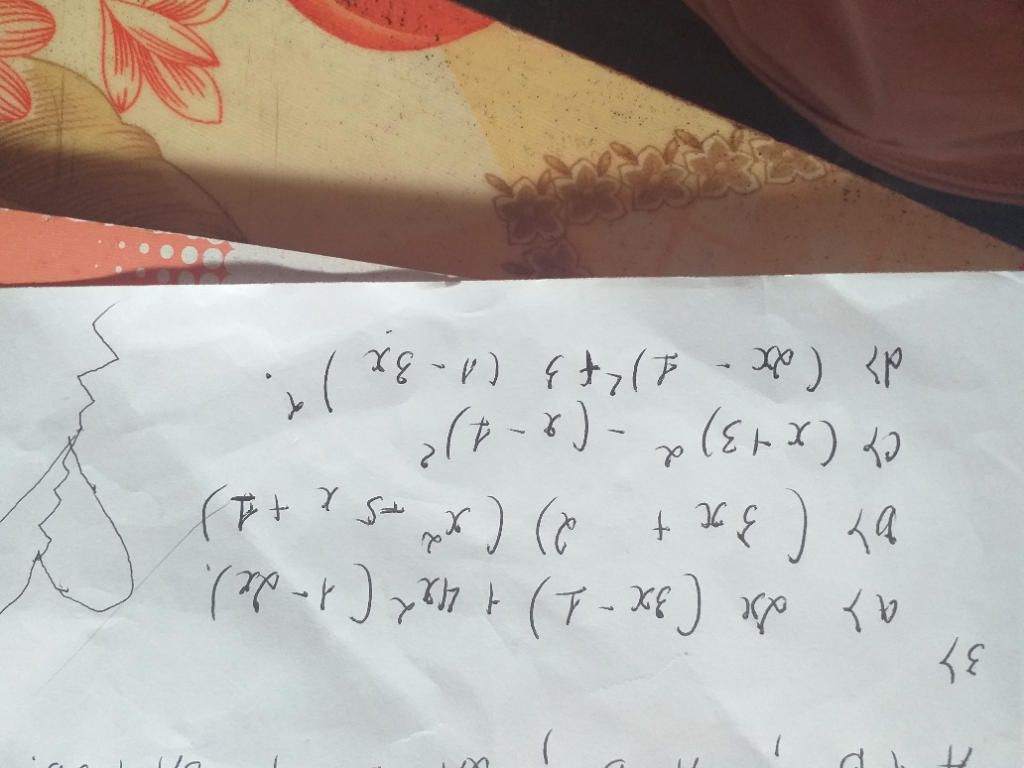 3>
a> 2x (3x - 1) + 4x² (1 - 2x).
b> (3x + 2) (x² + 5x + 1)
c> (x + 3)² - (x - 1)²
d> (2x - 1)² + 3 (1 - 3x)².